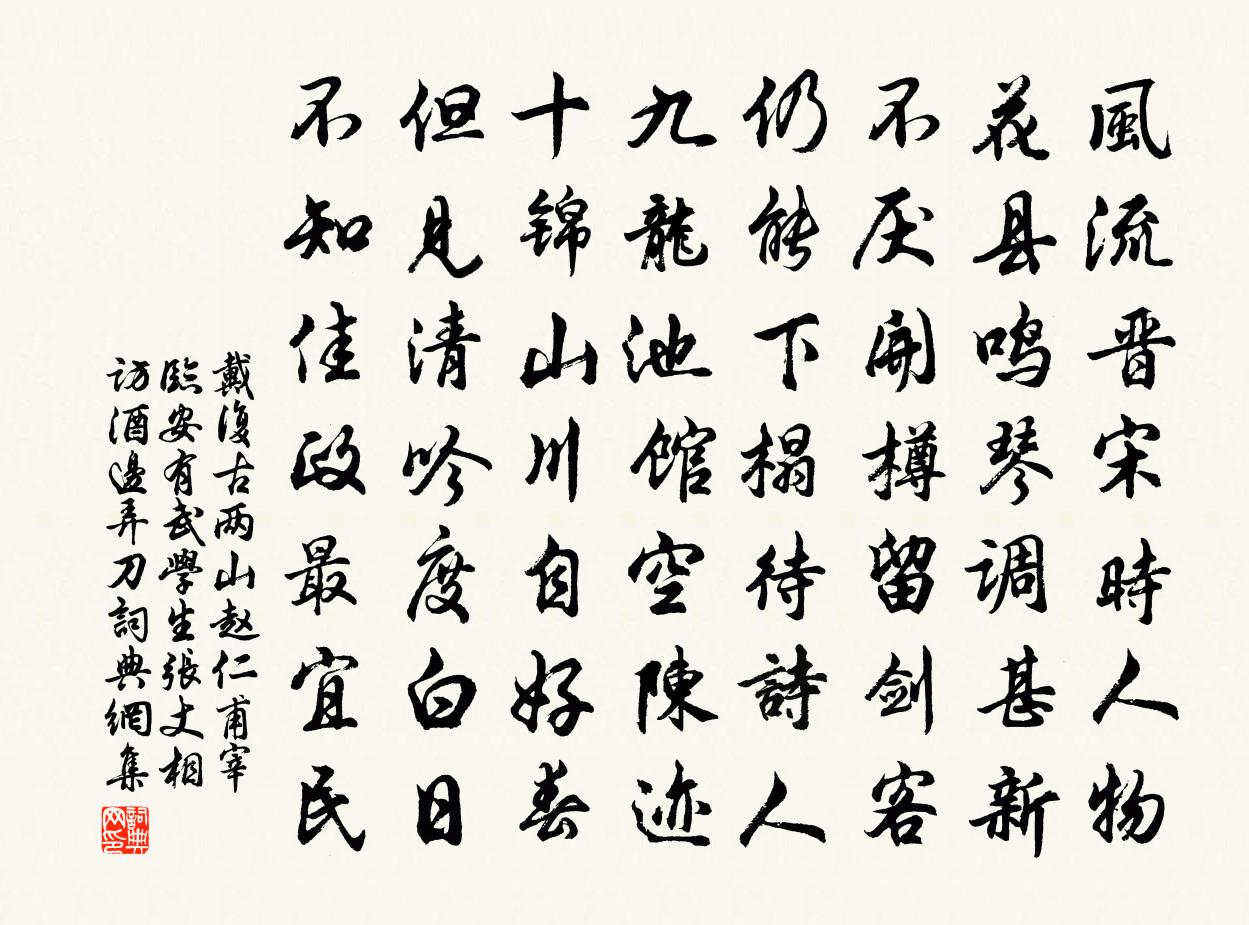 風流晋宋時人物
花县鸣琴调甚新
不厌開樽留剑客
仍能下榻待詩人
九龍池馆空陳迹
十锦山川自好春
但見清吟度白日
不知佳政最宜民
戴復古两山赵仁甫宰
臨安有武學生張丈相
訪酒邊弄刀詞典網集
詞典
网印